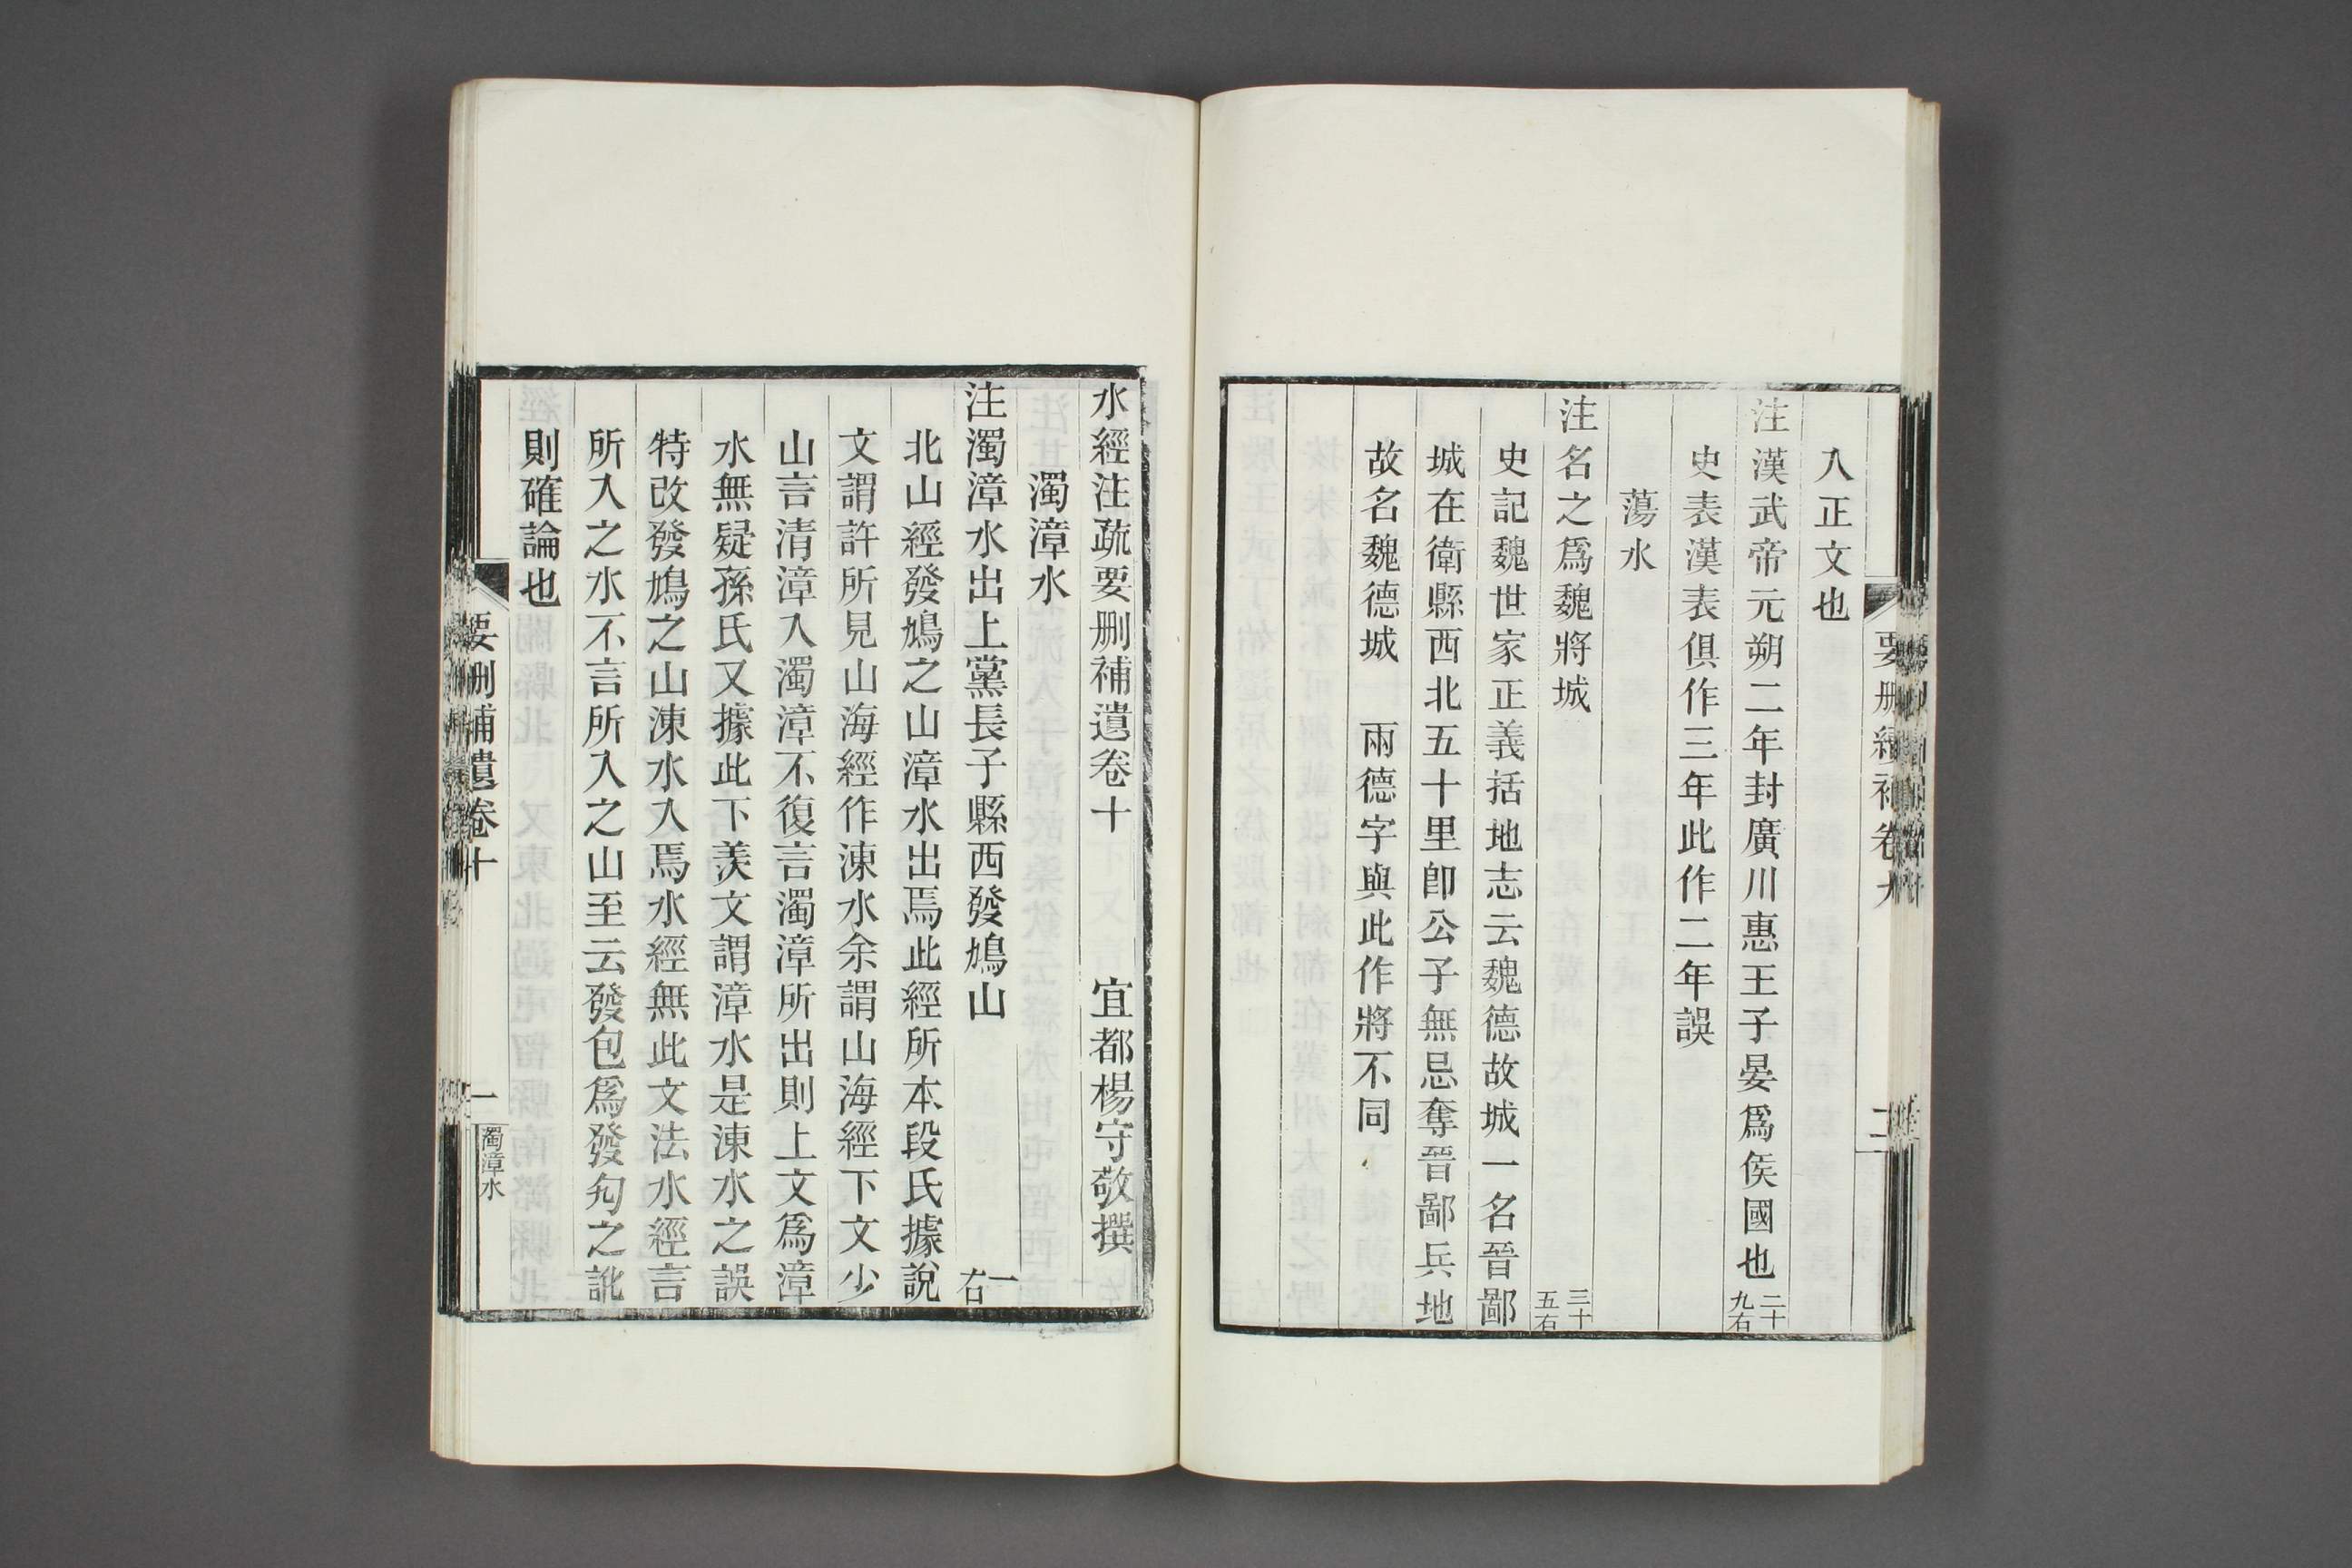 入正文也
注漢武帝元朔二年封廣川惠王子晏爲矦國也二十九右
史表漢表俱作三年此作二年誤
蕩水
注名之爲魏將城三十五右
史記魏世家正義括地志云魏德故城一名晉鄙
城在衛縣西北五十里卽公子無忌奪晉鄙兵地
故名魏德城　兩德字與此作將不同
水經注疏要删補遺卷十　宜都楊守敬撰
濁漳水
注濁漳水出上黨長子縣西發鳩山一右
北山經發鳩之山漳水出焉此經所本段氏據說
文謂許所見山海經作涷水余謂山海經下文少
山言清漳入濁漳不復言濁漳所出則上文爲漳
水無疑孫氏又據此下羨文謂漳水是涷水之誤
特改發鳩之山涷水入焉水經無此文法水經言
所入之水不言所入之山至云發包爲發勼之訛
則確論也
要删補遺卷十
一
濁漳水